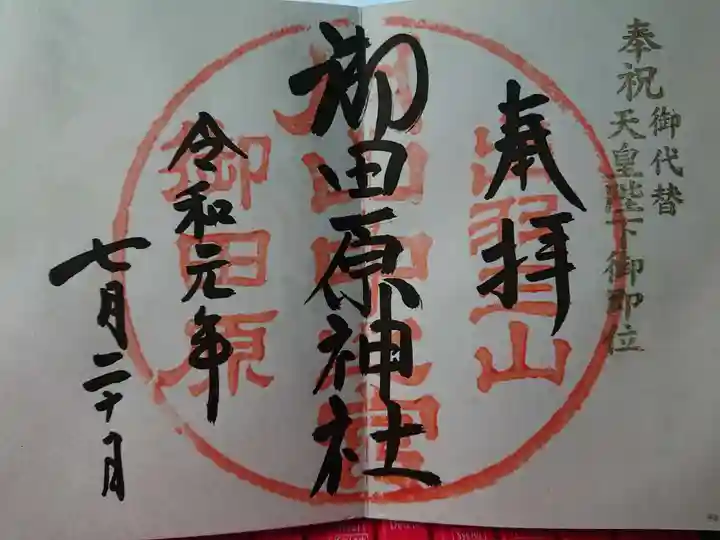 奉祝
御代替
天皇陛下御即位
奉拝
出羽三山
御田原神社
月山中之宮
令和元年
御田原
七月二十日